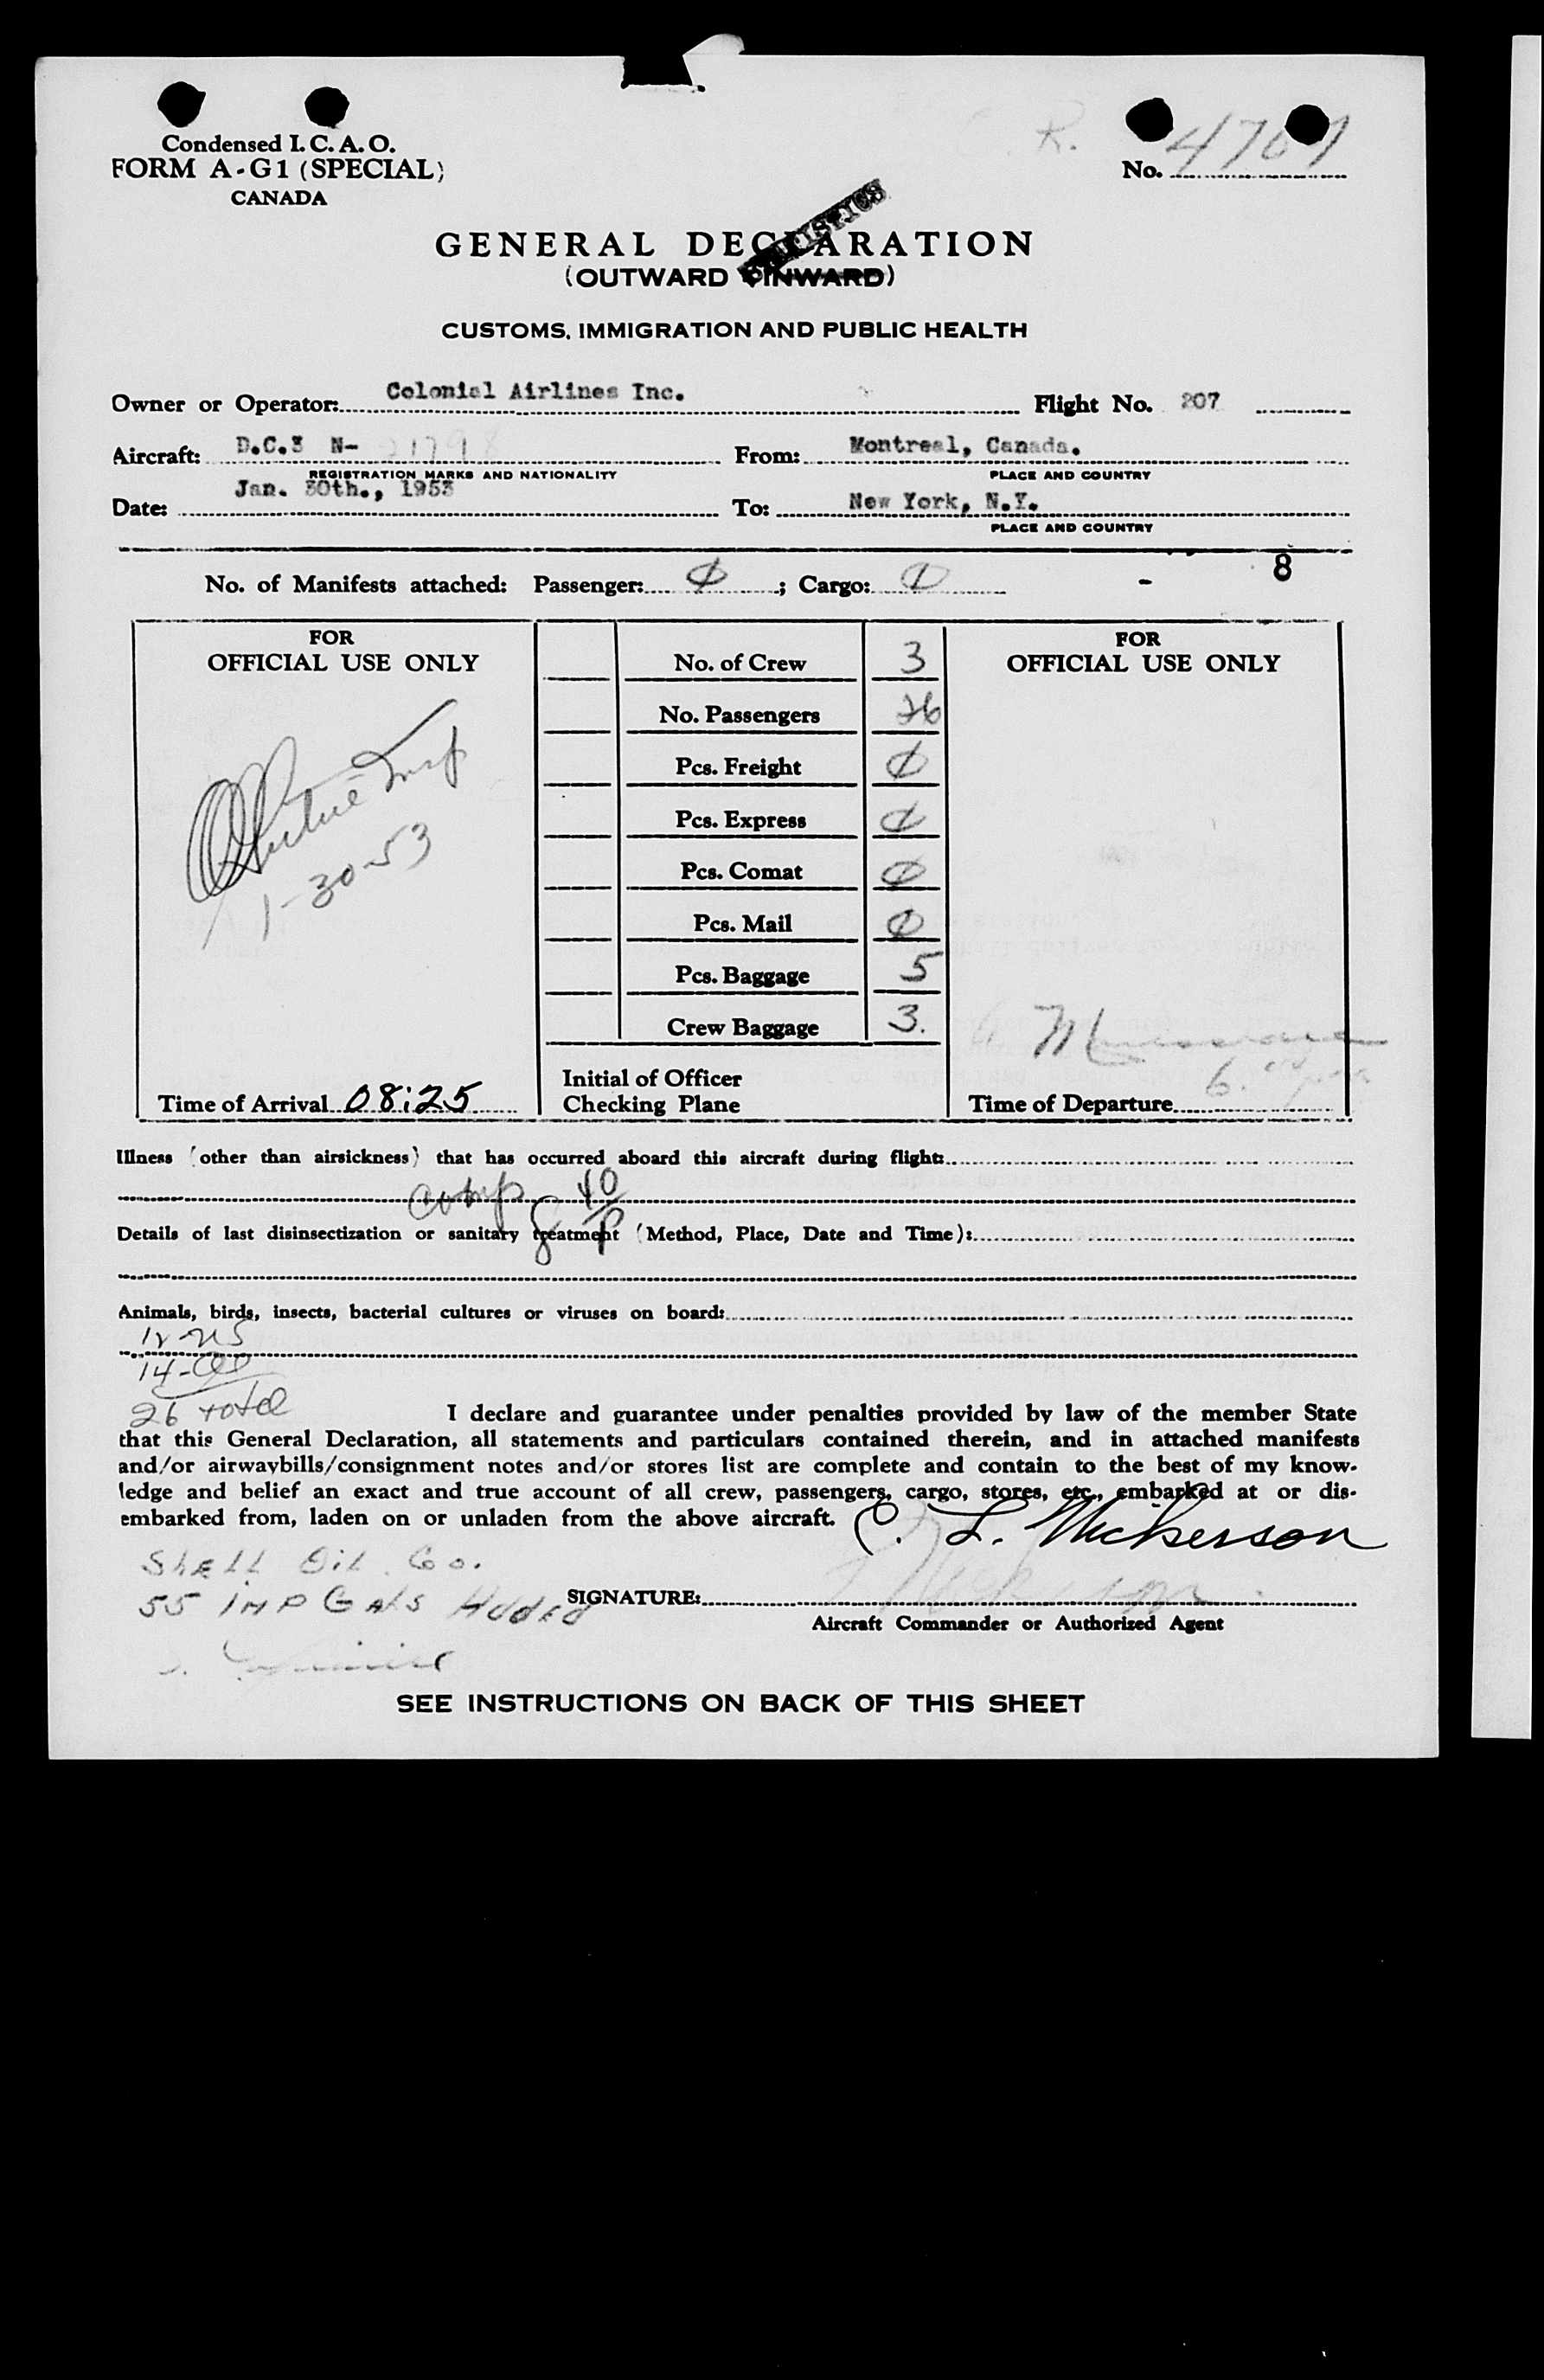 Condensed I.C.A.O.
FORM A-G1 (SPECIAL)
CANADA
R.
No. 4767
STATISTICS
GENERAL DECLARATION
(OUTWARD INWARD)
CUSTOMS, IMMIGRATION AND PUBLIC HEALTH
Owner or Operator: Colonial Airlines Inc. Flight No. 207
Aircraft: D.C.3 N- 21798 From: Montreal, Canada.
REGISTRATION MARKS AND NATIONALITY PLACE AND COUNTRY
Date: Jan. 30th., 1953 To: New York, N.Y.
PLACE AND COUNTRY
No. of Manifests attached: Passenger: 0 ; Cargo: 0 - 8
FOR
OFFICIAL USE ONLY
1-30-53
Time of Arrival 08:25
No. of Crew 3
No. Passengers 26
Pcs. Freight 0
Pcs. Express 0
Pcs. Comat 0
Pcs. Mail 0
Pcs. Baggage 5
Crew Baggage 3.
Initial of Officer
Checking Plane
FOR
OFFICIAL USE ONLY
Time of Departure
Illness (other than airsickness) that has occurred aboard this aircraft during flight:
Details of last disinsectization or sanitary treatment (Method, Place, Date and Time):
Animals, birds, insects, bacterial cultures or viruses on board:
12-US
14-
26 total
I declare and guarantee under penalties provided by law of the member State
that this General Declaration, all statements and particulars contained therein, and in attached manifests
and/or airwaybills/consignment notes and/or stores list are complete and contain to the best of my know-
ledge and belief an exact and true account of all crew, passengers, cargo, stores, etc., embarked at or dis-
embarked from, laden on or unladen from the above aircraft.
C. L. Nickerson
Shell Oil Co.
55 IMP GALS Added
SIGNATURE:
Aircraft Commander or Authorized Agent
SEE INSTRUCTIONS ON BACK OF THIS SHEET